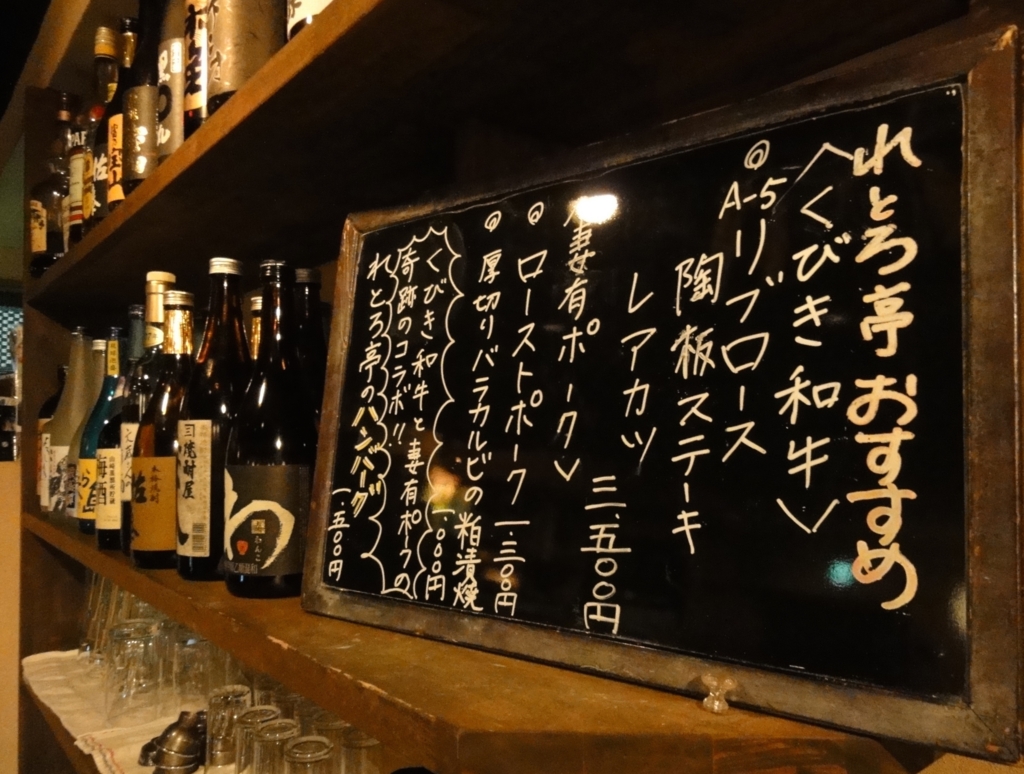 れとろ亭 おすすめ
〈くびき和牛〉
◎A-5リブロース
陶板ステーキ
レアカツ
三.五〇〇円
妻有ポーク〉
◎ローストポーク 一.三〇〇円
◎厚切りバラカルビの粕漬焼
一.〇〇〇円
くびき和牛と妻有ポークの
奇跡のコラボ!!
れとろ亭のハンバーグ
一.五〇〇円
わ
焼酎屋
梅酒
佐